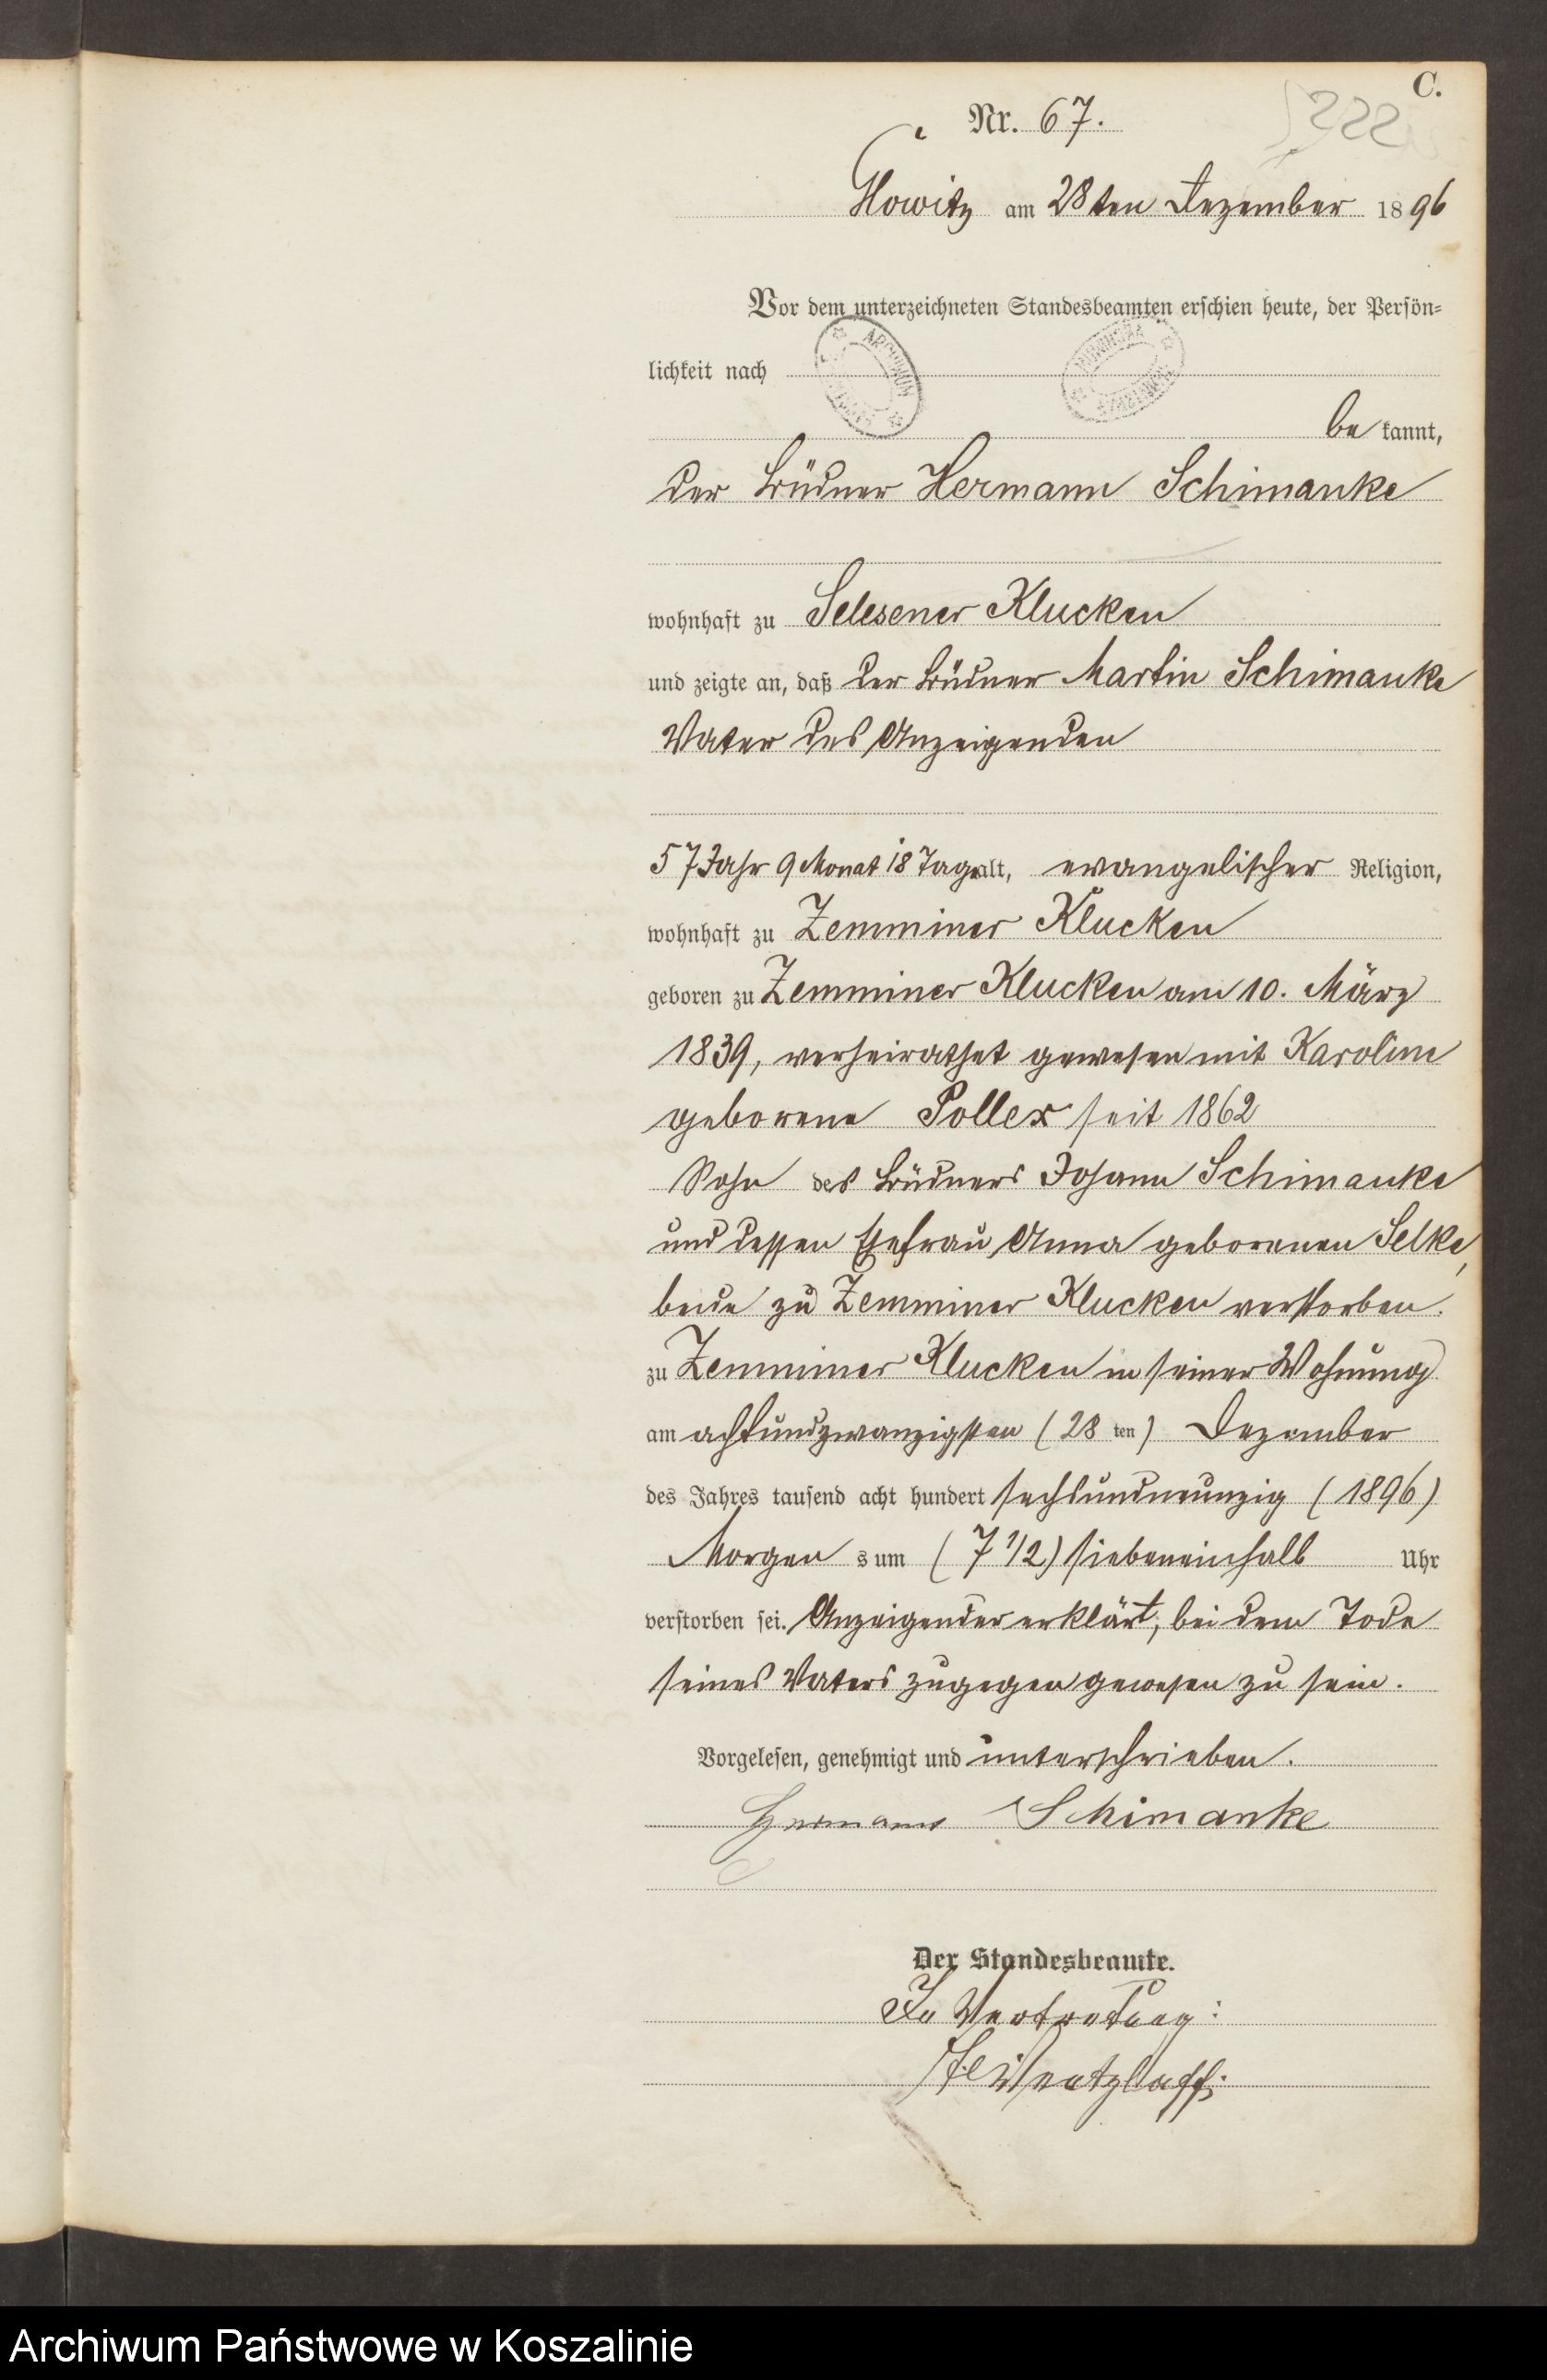 C.
Nr. 67.
222
Glowitz am 28ten Dezember 1896
Vor dem unterzeichneten Standesbeamten erschien heute, der Persön-
lichkeit nach
bekannt,
der Büdner Hermann Schimanke
wohnhaft zu Selesener Klucken
und zeigte an, daß der Büdner Martin Schimanke
Vater des Anzeigenden
57 Jahr 9 Monat 18 Tage alt, evangelischer Religion,
wohnhaft zu Zemminer Klucken
geboren zu Zemminer Klucken am 10. März
1839, verheirathet gewesen mit Karoline
geborene Pollex seit 1862
Sohn des Büdners Johann Schimanke
und dessen Ehefrau Anna geborenen Selke,
beide zu Zemminer Klucken verstorben.
zu Zemminer Klucken in seiner Wohnung
am achtundzwanzigsten (28 ten) Dezember
des Jahres tausend acht hundert sechsundneunzig (1896)
Morgens um (7 1/2) siebeneinhalb Uhr
verstorben sei. Anzeigender erklärt, bei dem Tode
seines Vaters zugegen gewesen zu sein.
Vorgelesen, genehmigt und unterschrieben.
Hermann Schimanke
Der Standesbeamte.
In Vertretung:
Wentzlaff.
Archiwum Państwowe w Koszalinie